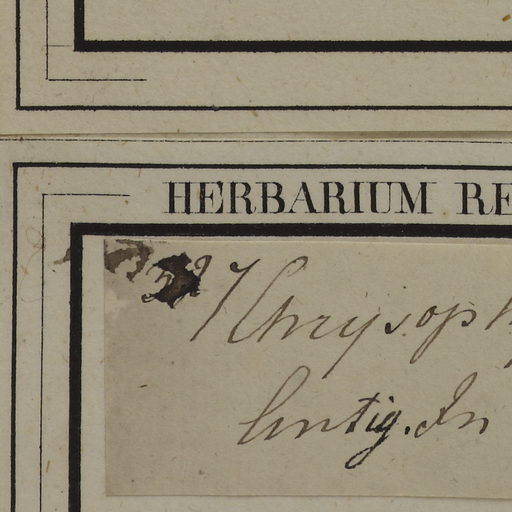 HERBARIUM RE
Chrysoph
Antig. In